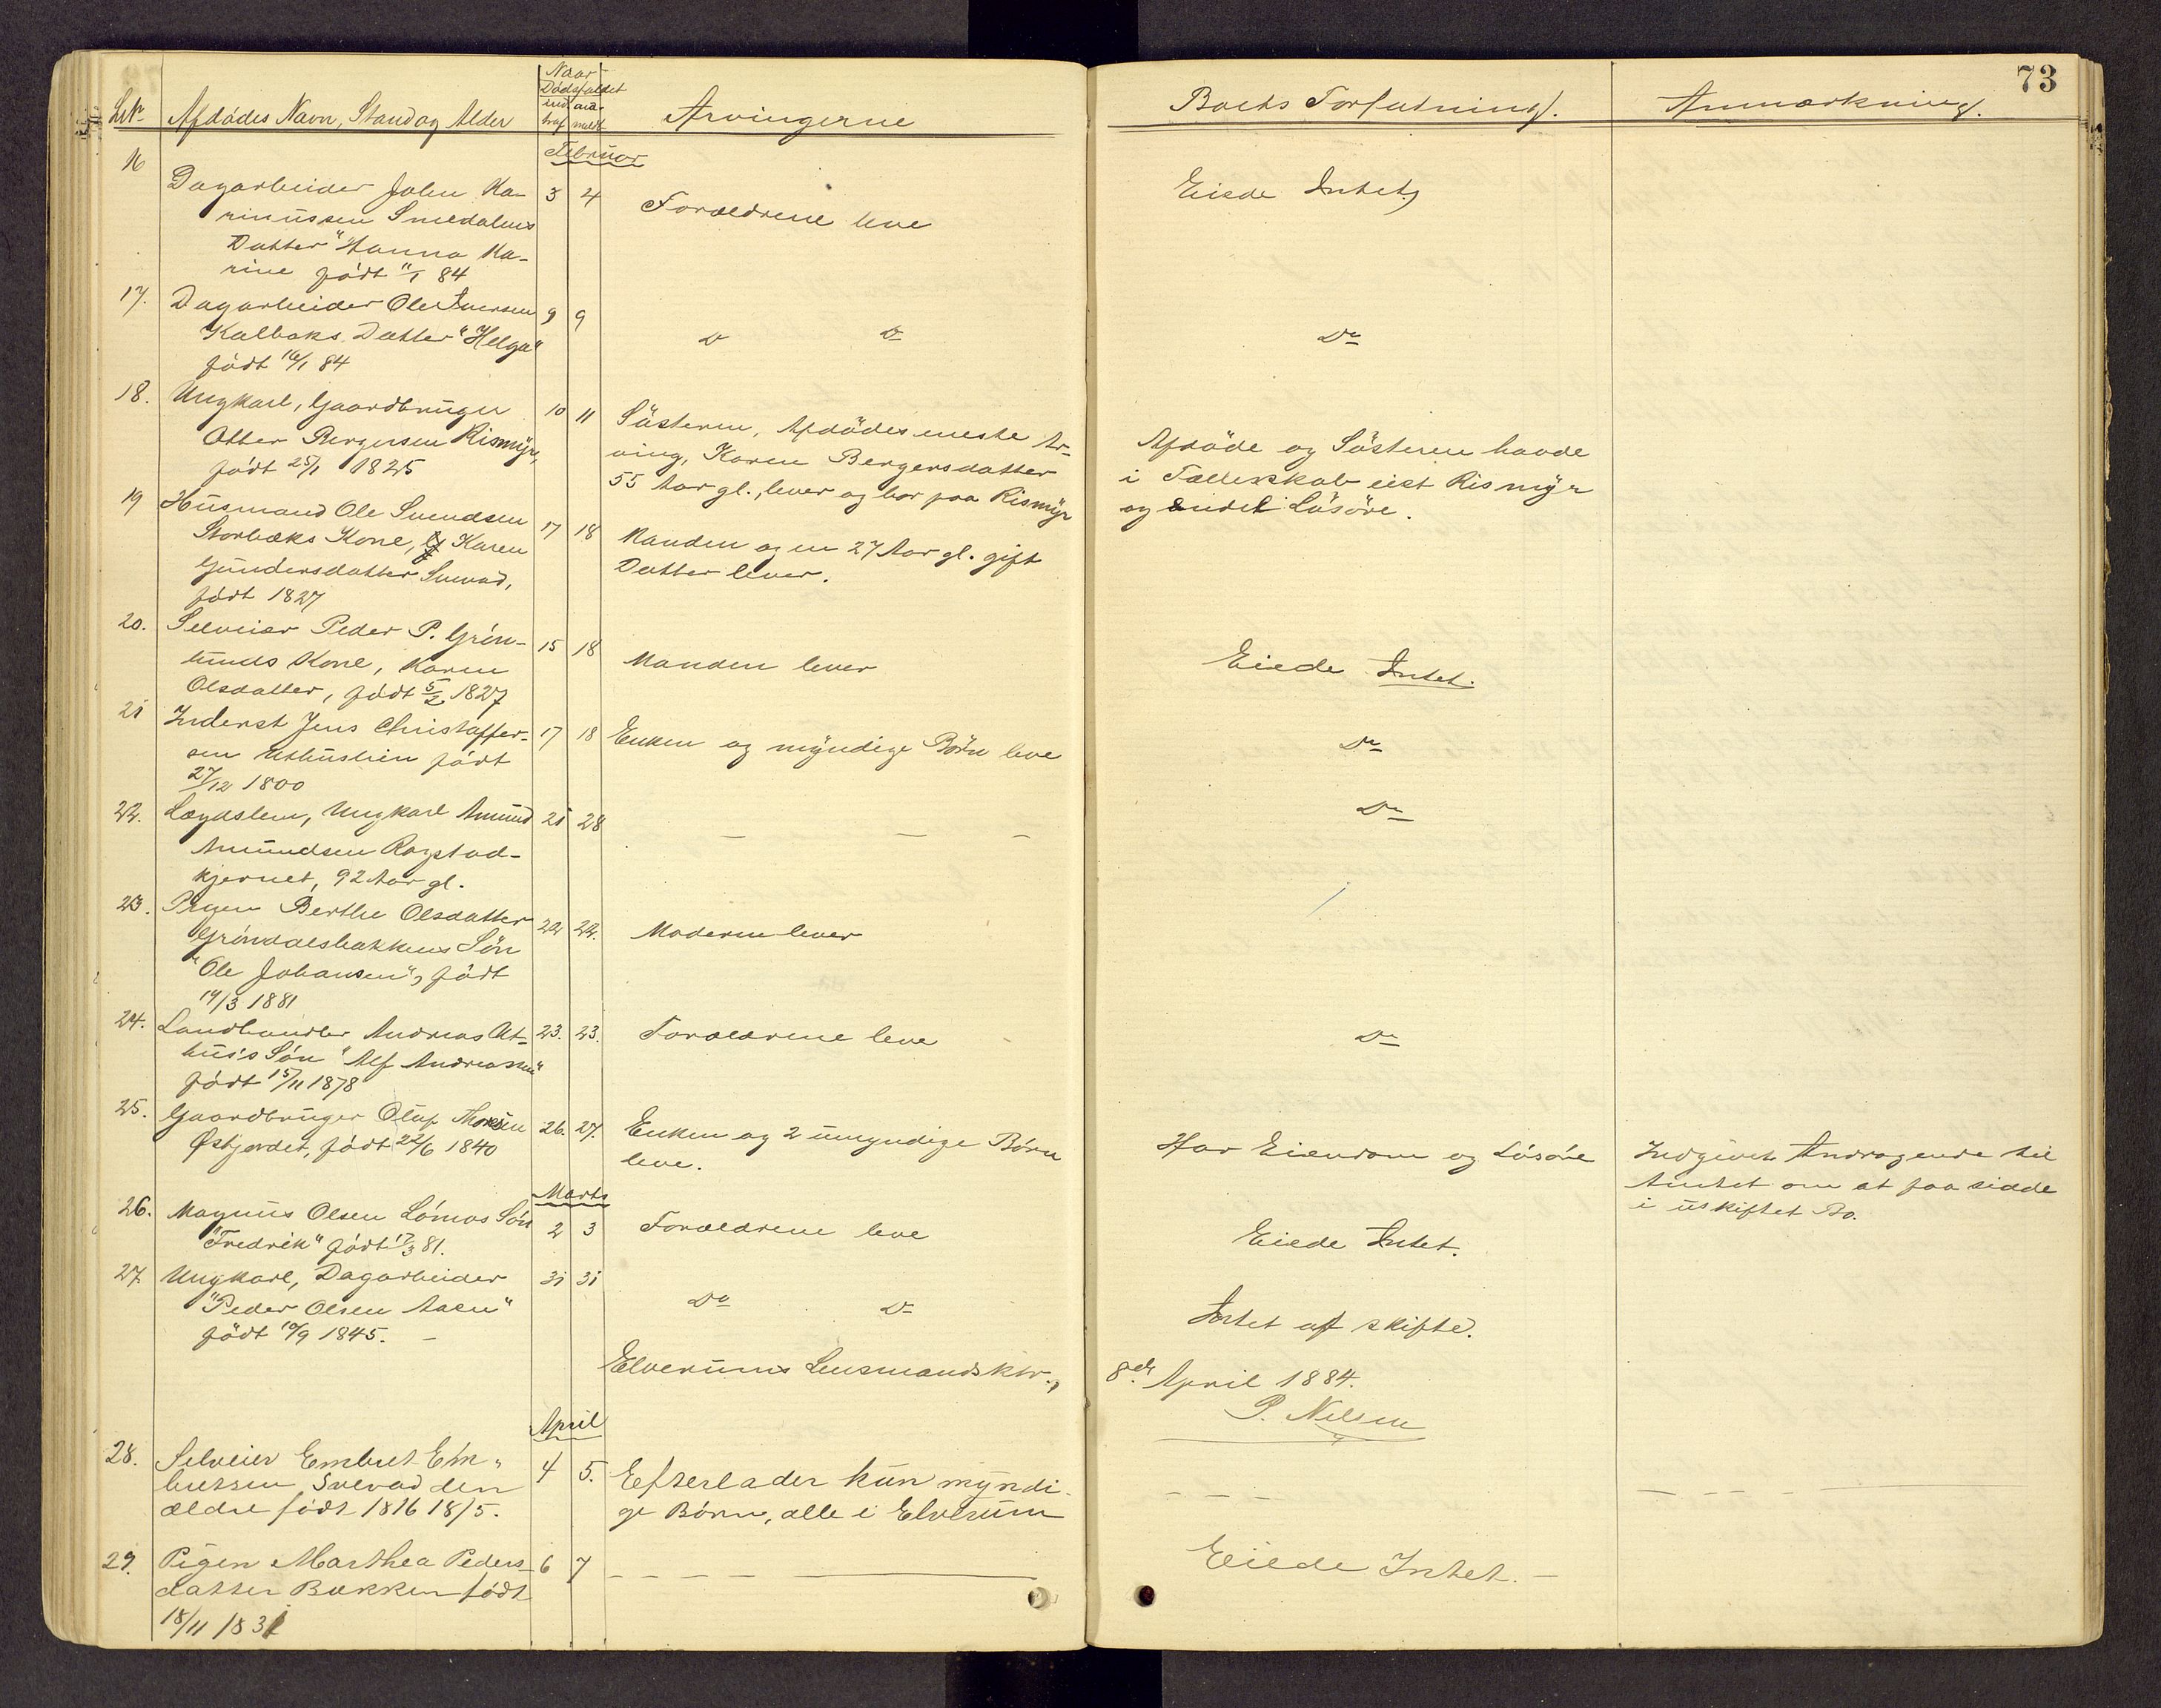 73
Naar
Dødsfaldet
ind- an-
traf meldt
LNr. Afdødes Navn, Stand og Alder Arvingerne Boets Forfatning. Anmærkning.
Februar
16 Dagarbeider John Ka- 3 4 Forældrene leve Eiede Intet
rinussen Smedalens
Datter "Hanna Ka-
rine født 11/1 84
17. Dagarbeider Ole Iversen 9 9
Kalbaks Datter "Helga" Do Do Do
født 16/1 84
18. Ungkarl, Gaardbruger 10 11 Søsteren, Afdødes eneste Ar-
Otter Bergersen Rismyr, ving, Karen Bergersdatter Afdøde og Søsteren havde
født 25/1 1825 55 Aar gl., lever og bor paa Rismyr i Fællesskab eiet Rismyr
og endel Løsøre.
19 Husmand Ole Svendsen 17 18 Manden og en 27 Aar gl. gift
Storbæks Kone, Karen Datter lever.
Gundersdatter Svevad,
født 1827
20. Selveier Peder P. Grøn- 15 18 Manden lever Eiede Intet.
lunds Kone, Karen
Olsdatter, født 5/2 1827
21 Inderst Jens Christoffer- 17 18 Enken og myndige Børn leve Do
sen Uthuslien født
27/12 1800
22. Lægdslem, Ungkarl Amund 21 28 — — — Do
Amundsen Rogstad-
kjernet, 92 Aar gl.
23. Pigen Berthe Olsdatter 22 22. Moderen lever
Grøndalsbakkens Søn
"Ole Johansen", født
14/3 1881
24. Landhandler Andreas Ut- 23. 23. Forældrene leve Do
hus's Søn "Alf Andreassen"
født 15/11 1878
25. Gaardbruger Oluf Monsen 26. 27. Enken og 2 umyndige Børn
Østgjerdet, født 22/6 1840 leve. Har Eiendom og Løsøre Indgivet Andragende til
Amtet om at faa sidde
i uskiftet Bo.
Marts
26. Magnus Olsen Lømos Søn 2 3 Forældrene leve Eiede Intet.
"Fredrik" født 17/3 81.
27. Ungkarl, Dagarbeider 31 31 Do Do Intet at skifte.
"Peder Olsen Aasen"
født 10/9 1845. —
Elverums Lensmandsktr., 8de April 1884.
P. Nilsen
April
28. Selveier Embret Em- 4 5. Eefterlader kun myndi-
bretsen Svevad den ge Børn, alle i Elverum
ældre født 1816 18/5.
29. Pigen Marthea Peders- 6 7 — — — — Eiede Intet. —
datter Bakken født
18/11 1831